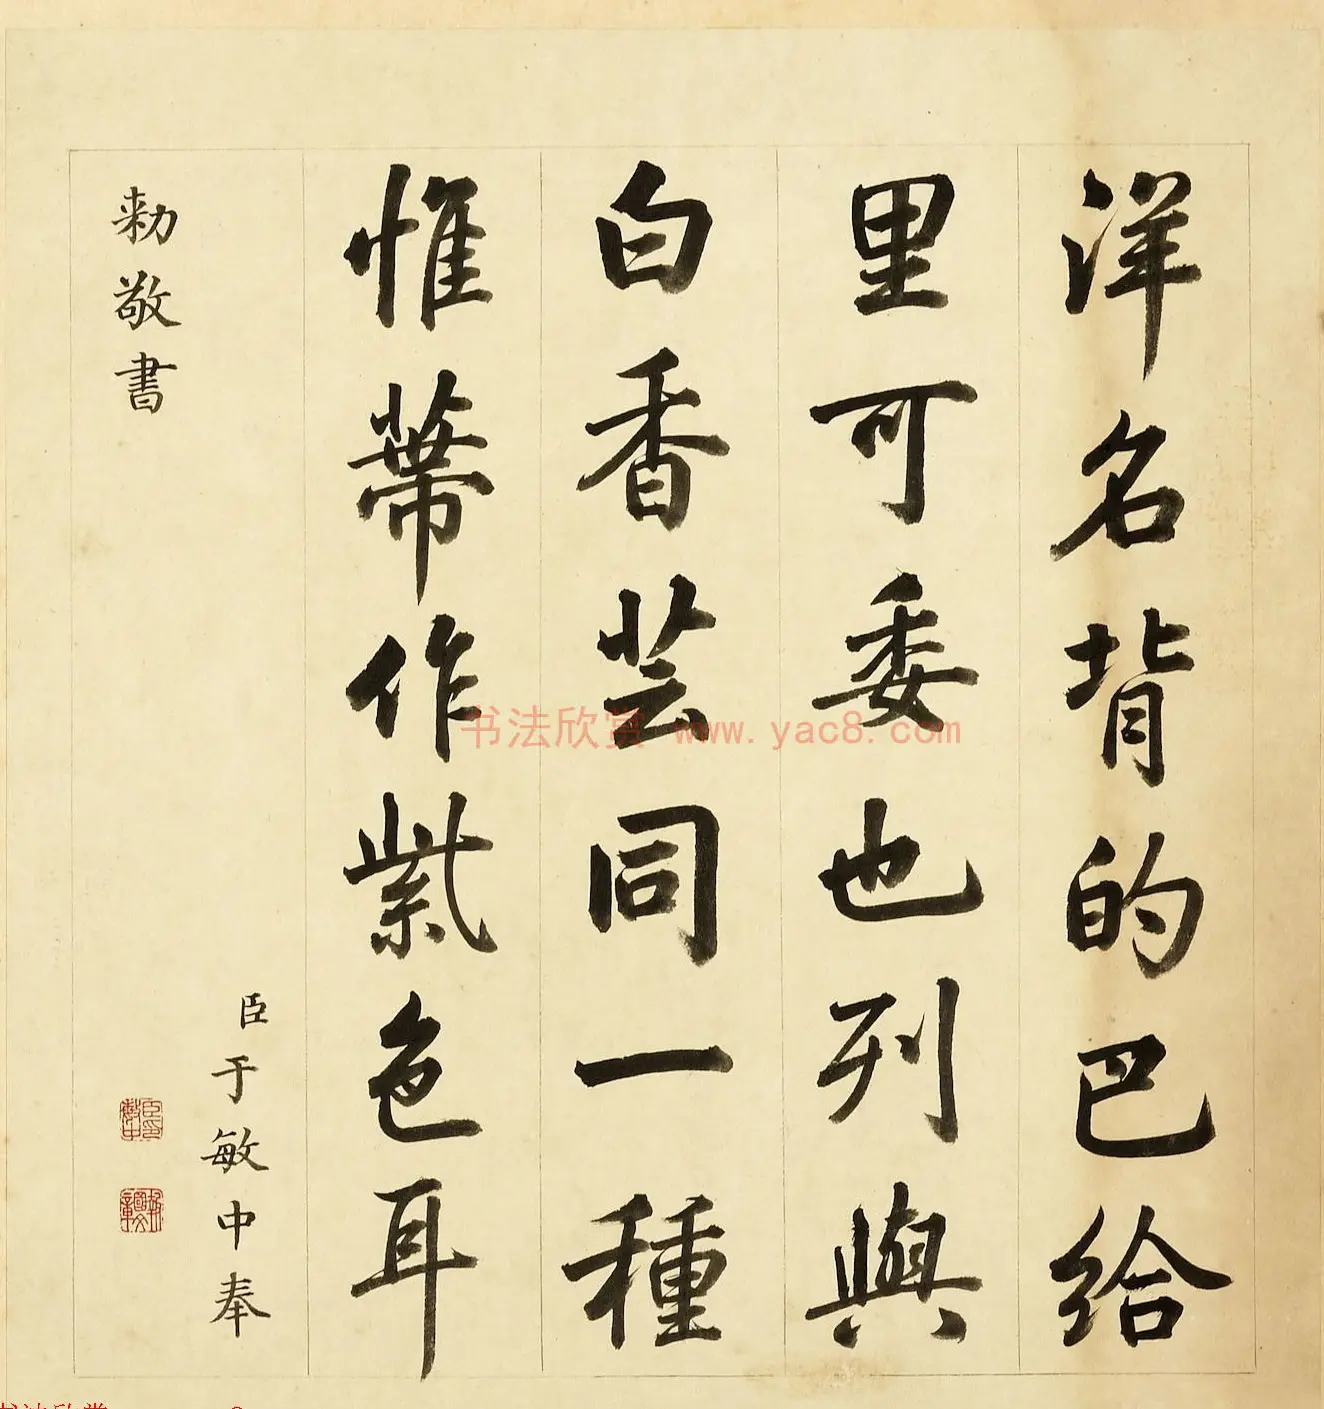 洋名背的巴給
里可委也列與
白香芸同一種
惟蒂作紫色耳
臣于敏中奉
勅敬書
书法欣赏 www.yac8.com